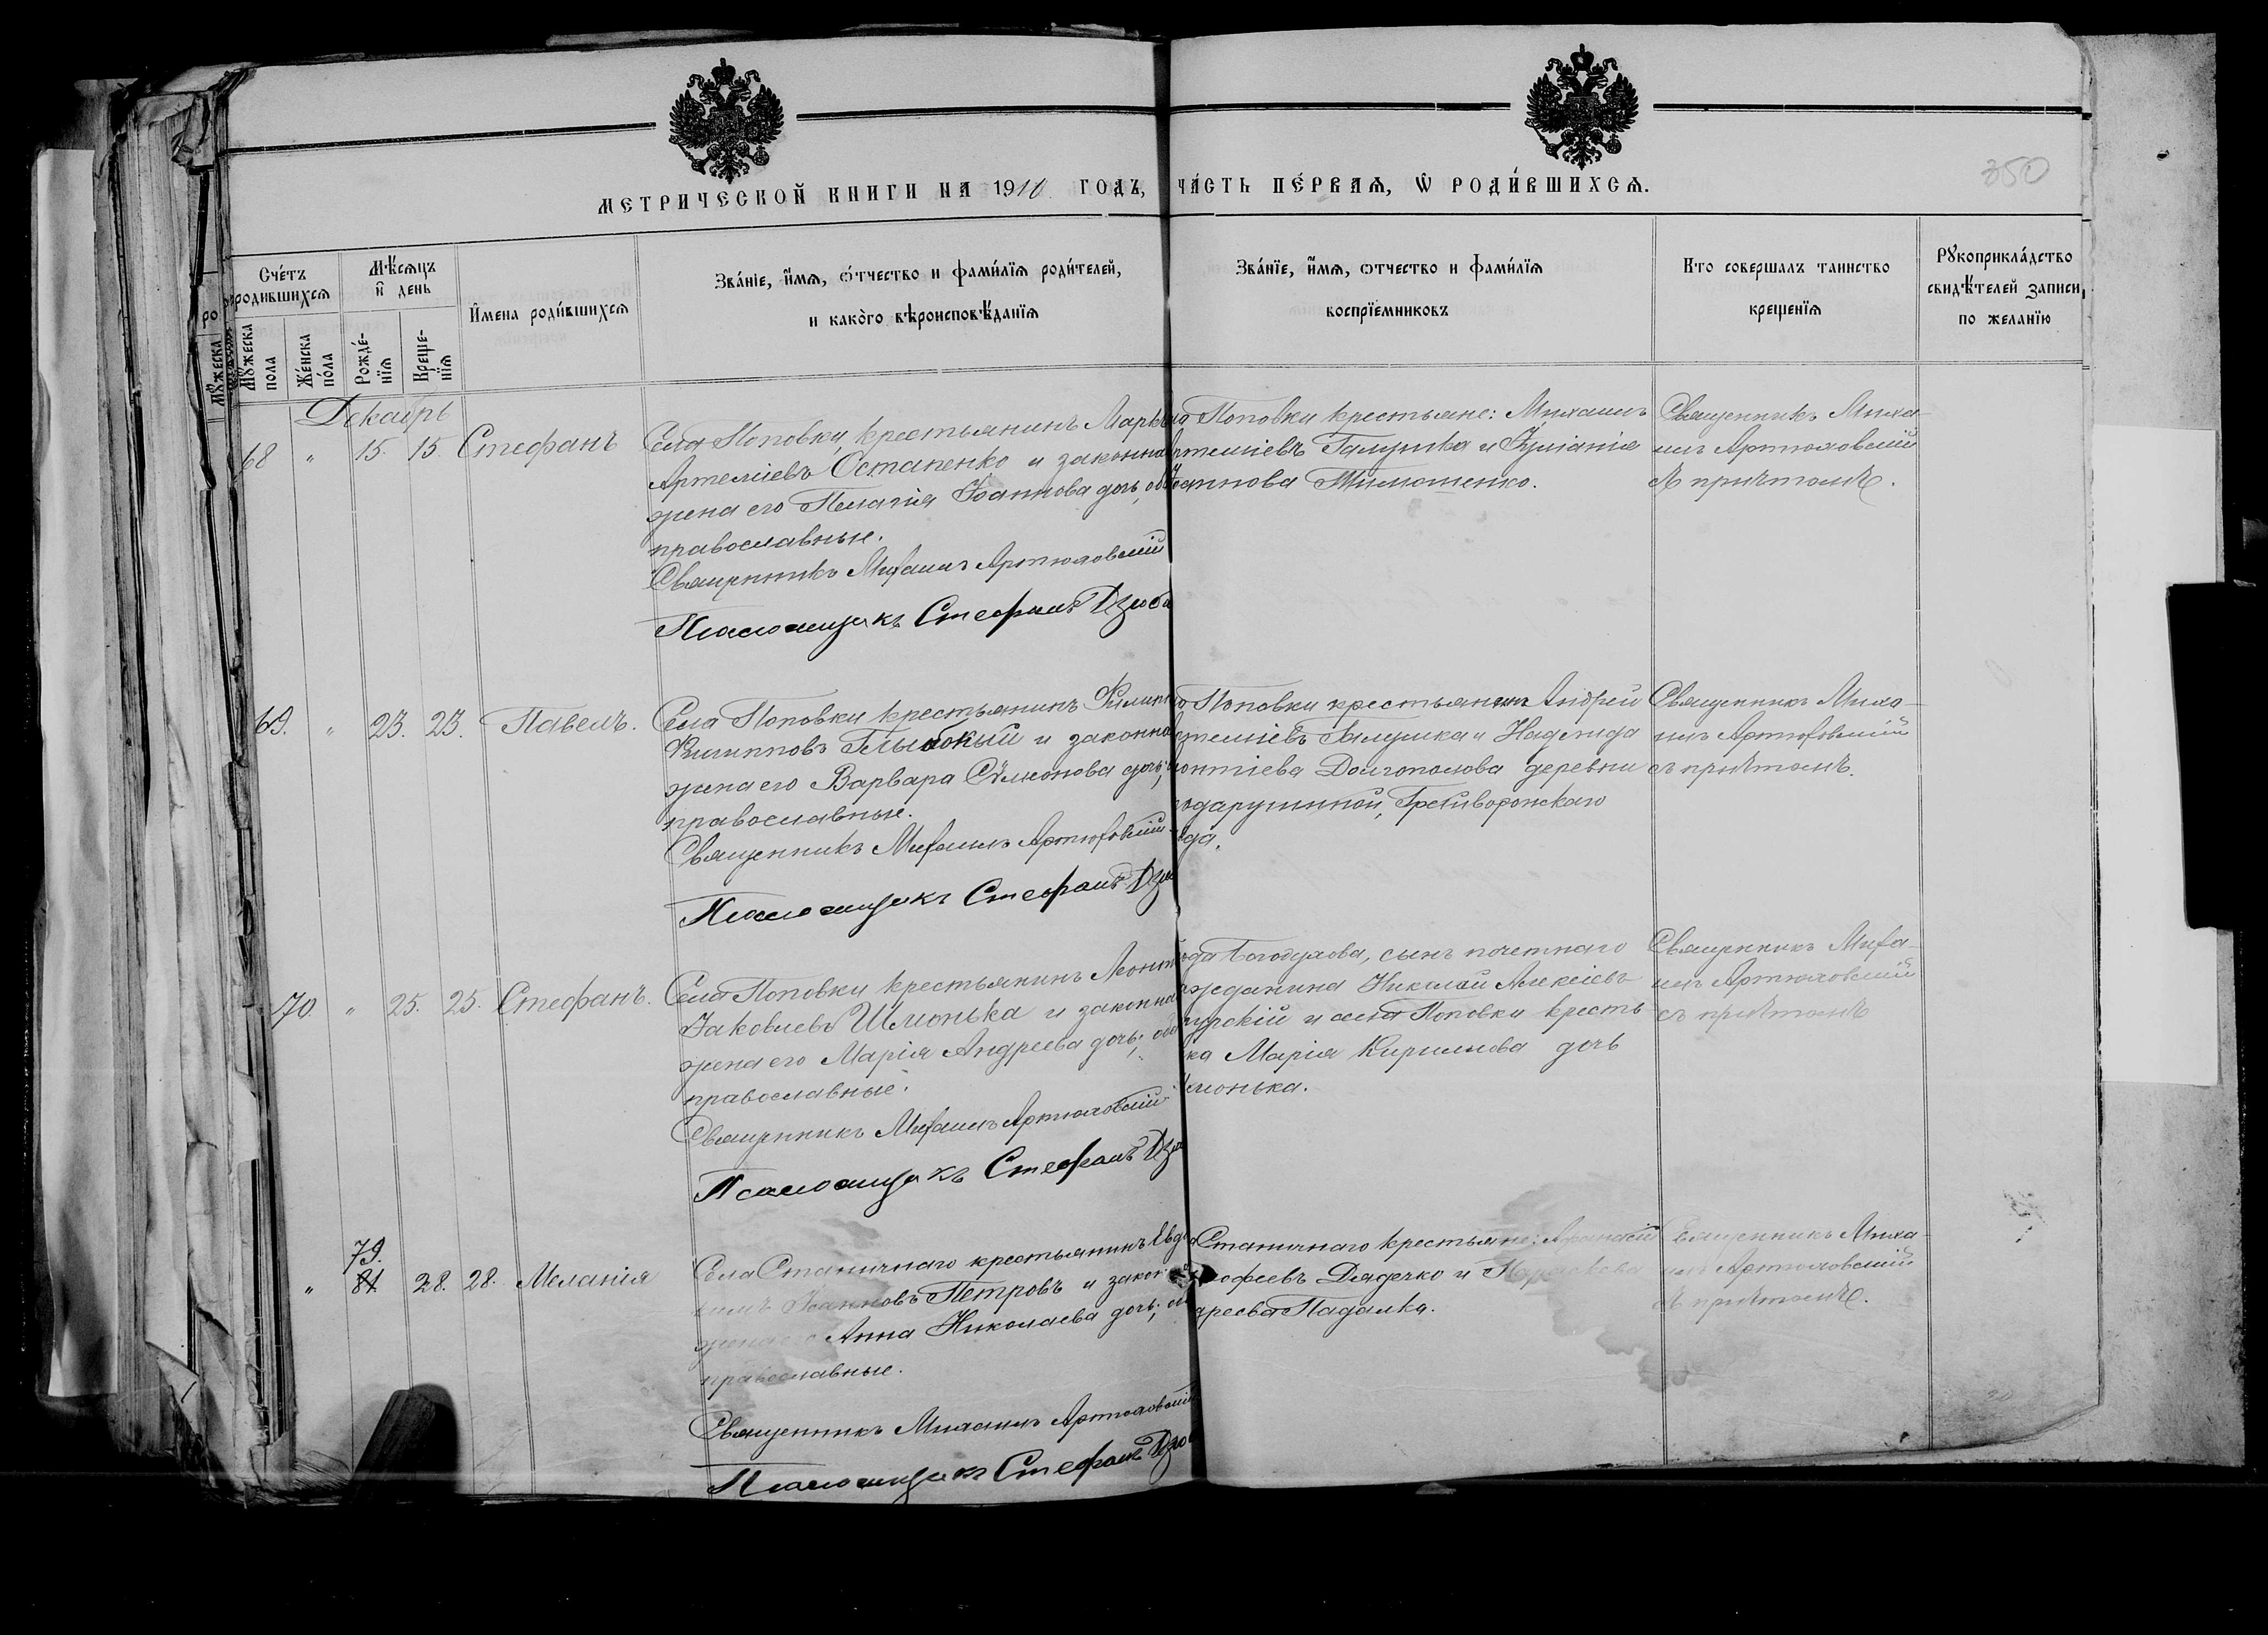 МЕТРИЧЕСКОЙ КНИГИ НА 1910 ГОДЪ, ЧА́СТЬ ПЕ́РВАЯ, Ѡ РОДИ́ВШИХСЯ.
350
Сче́тъ родившихся
Мѣ́сяцъ и҆ день
И҆мена роди́вшихся
Зва́нїе, и҆́мя, ѻ҆́тчество и фами́лїя роди́телей,
и како́го вѣроисповѣ́данїя
Зва́нїе, и҆́мя, ѻтчество и фами́лїя
воспрїемниковъ
Кто совершалъ таинство
крещенїя
Рꙋкоприкла́дство
свидѣ́телей записи,
по желанїю
Мꙋ́жеска пола
Же́нска по́ла
Рожде́нїя
Крещенїя
Декабрь
68 " 15. 15. Стефанъ
Села Поповки, крестьянинъ Маркъ
Артеміевъ Остапенко и законная
жена его Пелагія Іоаннова дочь, оба
православные.
Священникъ Михаилъ Артюховскій
Псаломщикъ Стефанъ Дзюба
Поповки крестьяне: Михаилъ
ртеміевъ Галушка и Іуліанія
Іоаннова Тимошенко.
Священникъ Миха-
илъ Артюховскій
съ причтомъ.
69. " 23. 23. Павелъ.
Села Поповки крестьянинъ Филиппъ
Филипповъ Глыбокый и законная
жена его Варвара Сѵмеонова дочь;
православные.
Священникъ Михаилъ Артюховскій
Псаломщикъ Стефанъ Дзю
Поповки крестьянинъ Андрей
ртеміевъ Галушка и Надежда
онтіева Долгополова деревни
Грайворонскаго
ѣзда.
Священникъ Миха-
илъ Артюховскій
съ причтомъ.
70. " 25. 25. Стефанъ.
Села Поповки крестьянинъ Леонт
Іаковлевъ Шмонька и законная
жена его Марія Андреева дочь; оба
православные.
Священникъ Михаилъ Артюховскій
Псаломщикъ Стефанъ Дзю
ода Богодухова, сынъ почетнаго
ражданина Николай Алексіевъ
гурскій и села Поповки кресть
ка Марія Кириллова дочь
Шмонька.
Священникъ Миха-
илъ Артюховскій
съ причтомъ
79.
" 81 28. 28. Меланія
Села Станичнаго крестьянинъ Евдо
кимъ Іоанновъ Петровъ и законная
жена его Анна Николаева дочь; оба
православные.
Священникъ Михаилъ Артюховскій
Псаломщикъ Стефанъ Дзю
Станичнаго крестьяне: Афанасій
рофеевъ Дядечко и
дреева Падалка.
Священникъ Миха
илъ Артюховскій
съ причтомъ.